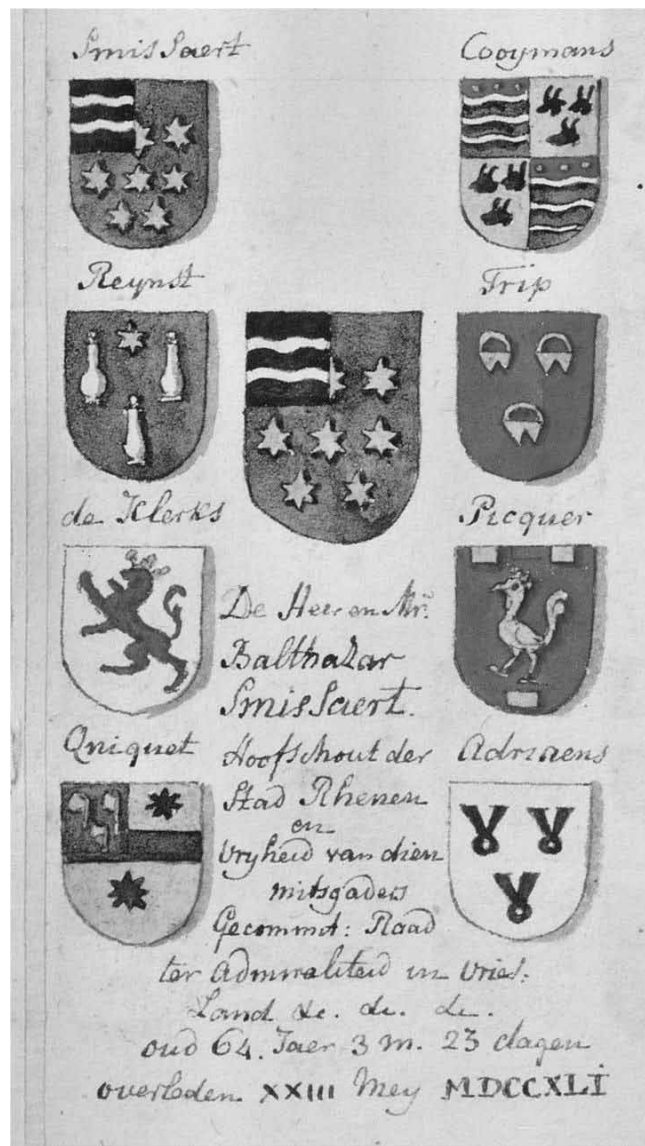 Smissaert
Cooymans
Reynst
Trip
de Klerks
Picquer
De Heer en Mr:
Balthazar
Smissaert.
Qniquet
Hoofschout der
Adriaens
Stad Rhenen
en
Vryheid van dien
mitsgaders
Gecommit: Raad
ter Admiraliteid in Vries:
Land &c. &c. &c.
oud 64. Jaer 3 m. 23 dagen
overleden XXIII Mey MDCCXLI